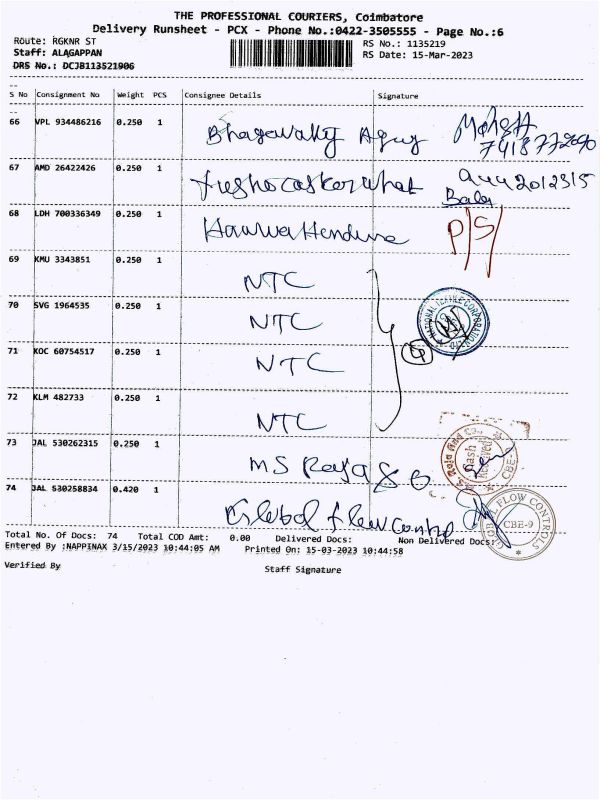 THE PROFESSIONAL COURIERS, Coimbatore
Delivery Runsheet - PCX - Phone No.:0422-3505555 - Page No.:6
Route: RGKNR ST
RS No.: 1135219
Staff: ALAGAPPAN
RS Date: 15-Mar-2023
DRS No.: DCJB113521906
S No Consignment No Weight PCS Consignee Details Signature
66 VPL 934486216 0.250 1 Bhagavathy Agny
67 AMD 26422426 0.250 1
Bala
68 LDH 700336349 0.250 1 P/S
69 KMU 3343851 0.250 1 NTC
70 SVG 1964535 0.250 1 NTC
NATIONAL TEXTILE CORPORATION LTD
71 KOC 60754517 0.250 1 NTC 4
72 KLM 482733 0.250 1 NTC
73 JAL 530262315 0.250 1 MS Raja & Co
74 JAL 530258834 0.420 1 Global flow control
GLOBAL FLOW CONTROLS CBE-9
Total No. Of Docs: 74 Total COD Amt: 0.00 Delivered Docs: Non Delivered Docs:
Entered By :NAPPINAX 3/15/2023 10:44:05 AM Printed On: 15-03-2023 10:44:58
Verified By Staff Signature